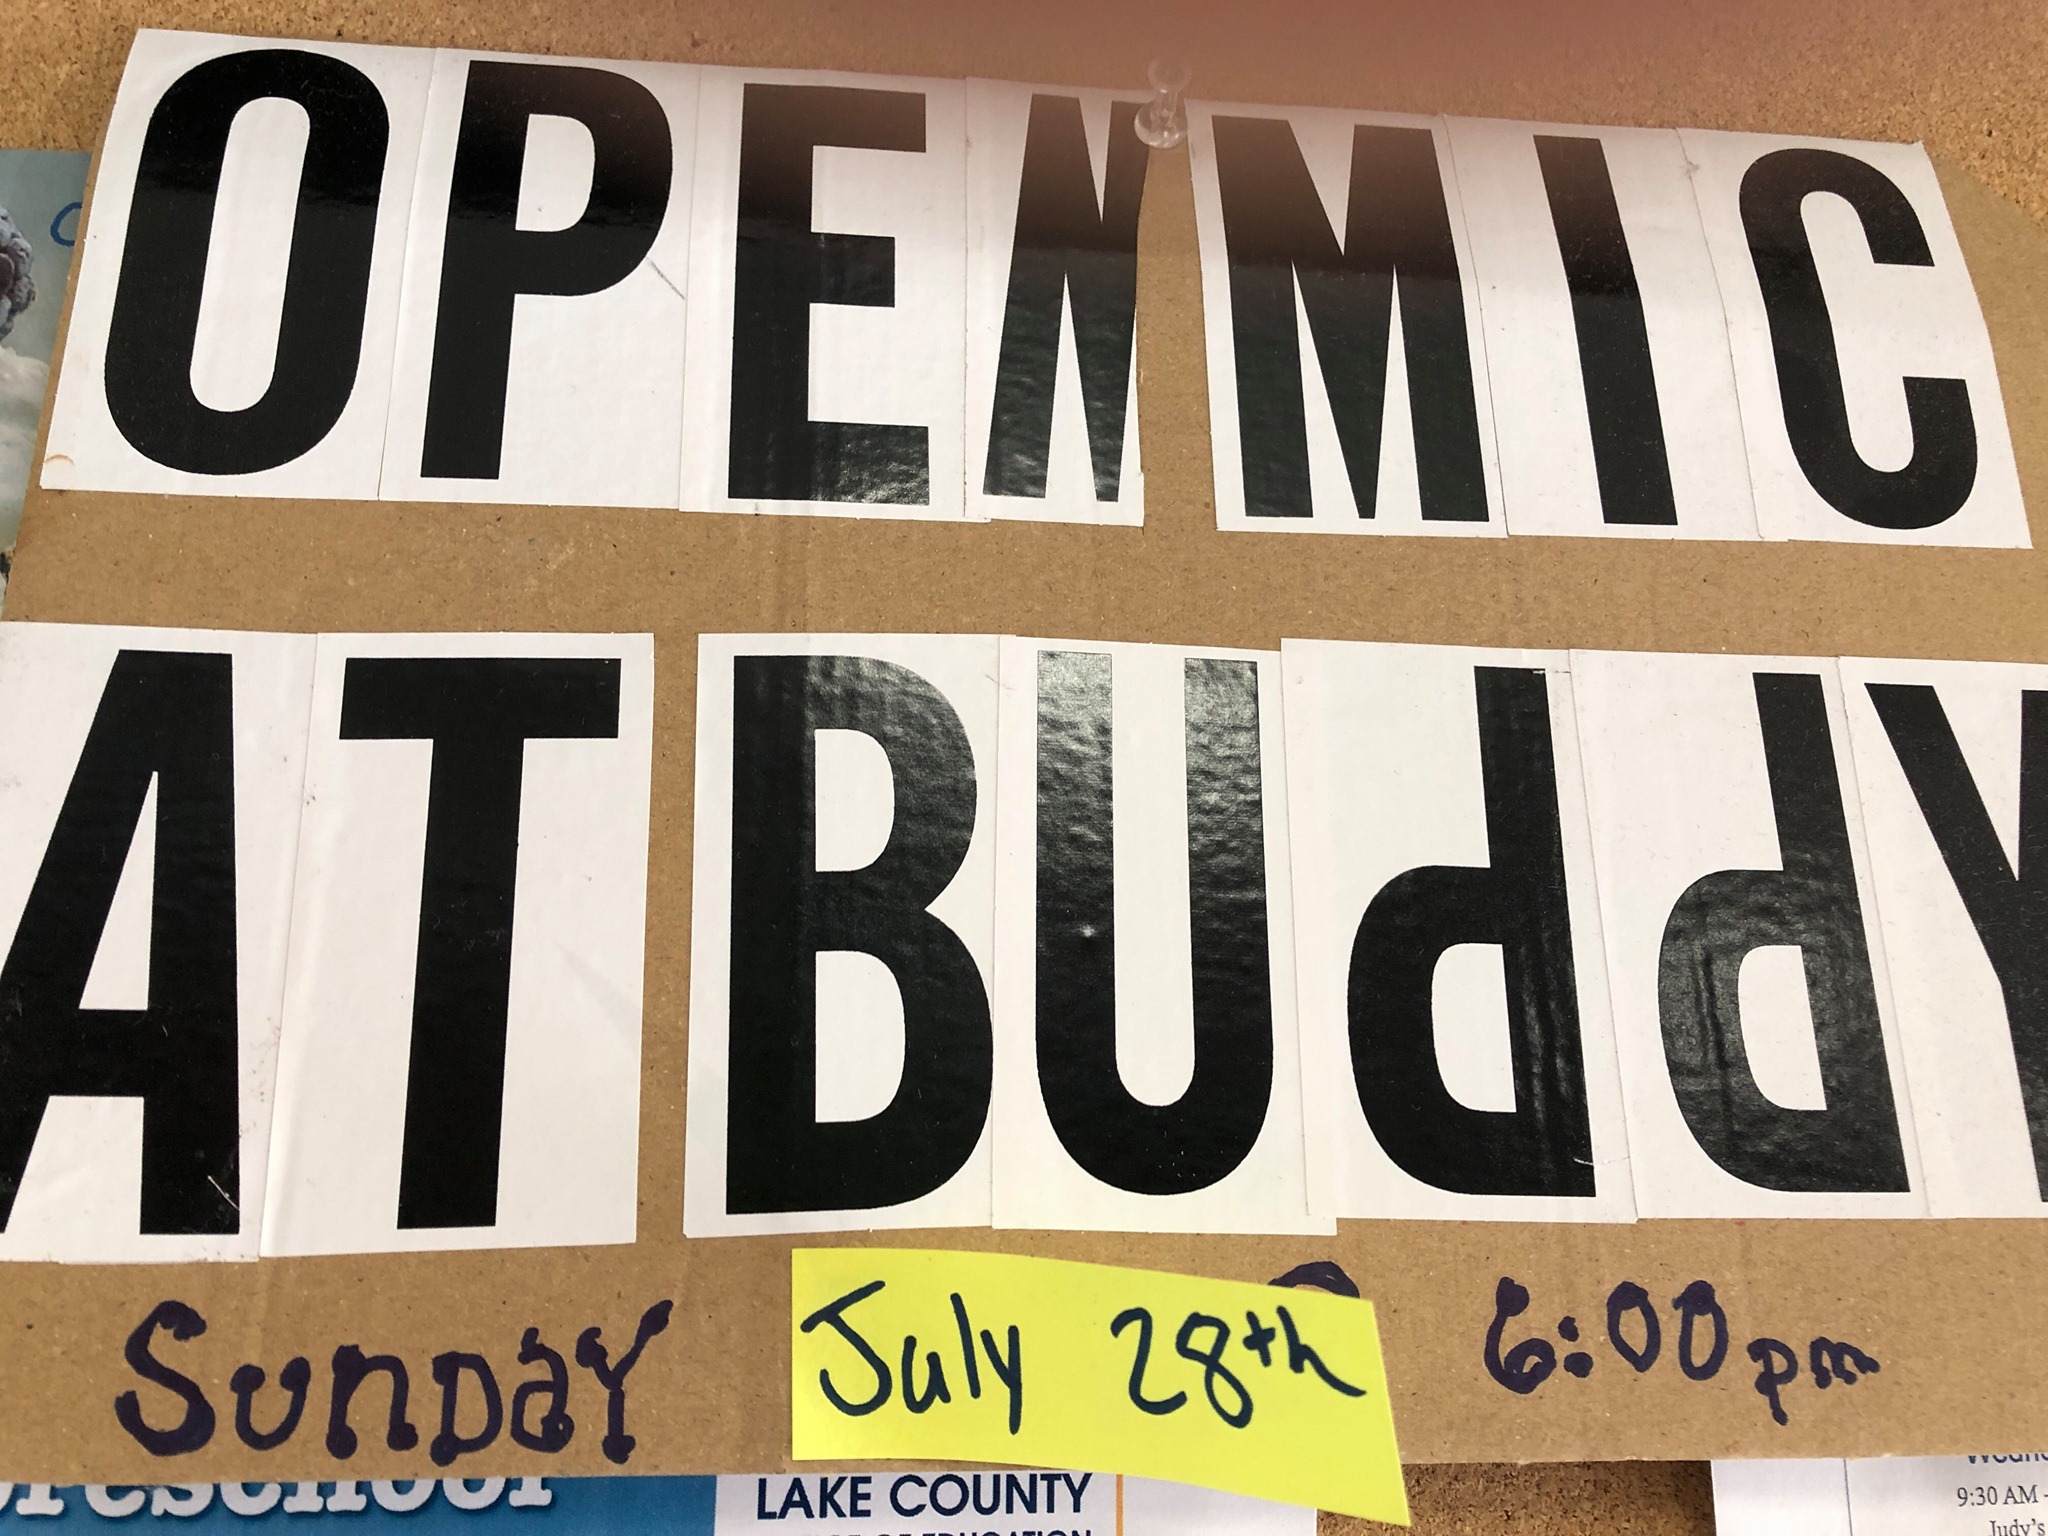 OPEN MIC
AT BUddY
Sunday July 28th 6:00pm
preschool
LAKE COUNTY
OF EDUCATION
9:30 AM -
Judy's